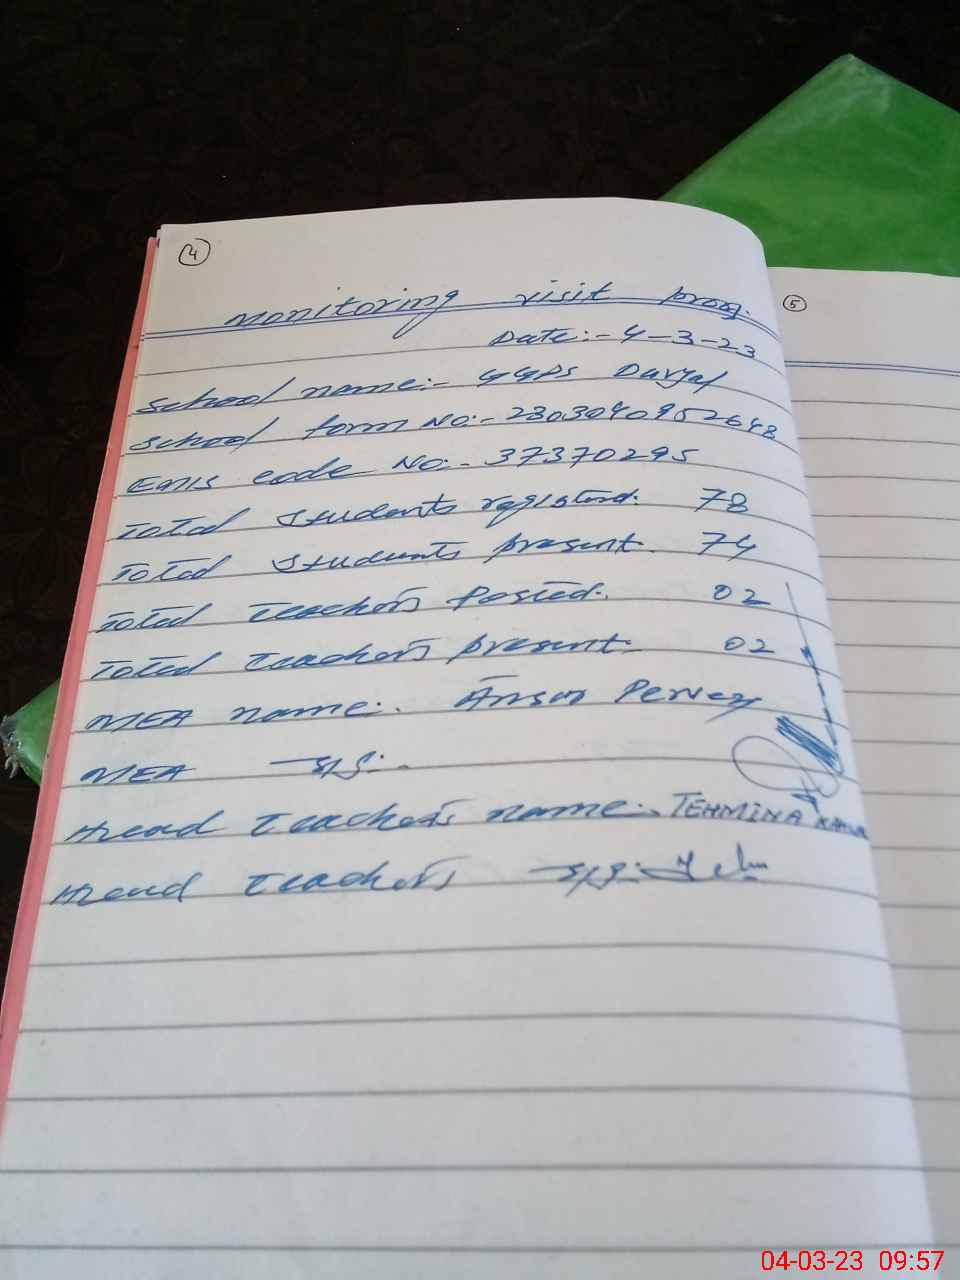 4
monitoring visit proog.
5
Date:- 4-3-23
School name:- GGPS Duryal
School form No:- 2303040952648
EMIS code No:- 37370295
Total Students registered: 78
Total Students present. 74
Total Teachers Posted:. 02
Total Teachers present:- 02
MEA name:. Ansar Pervez
MEA
Head Teachers name:. TEHMINA
Head Teachers
04-03-23 09:57